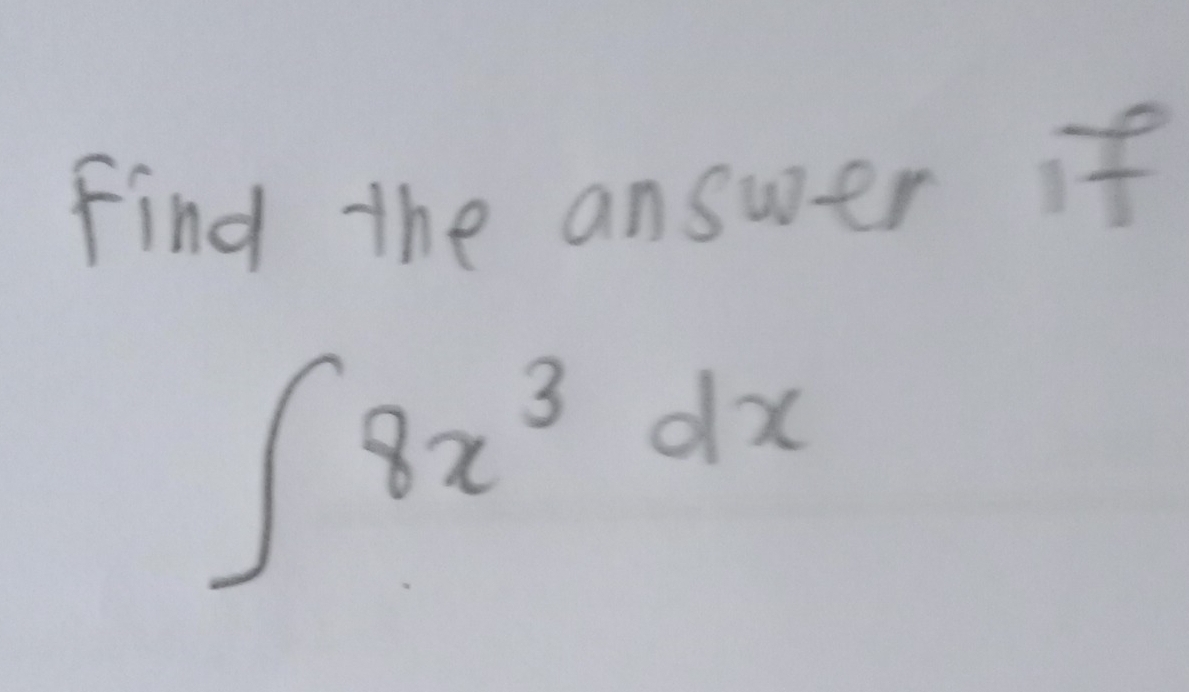 Find the answer if
∫ 8x³ dx